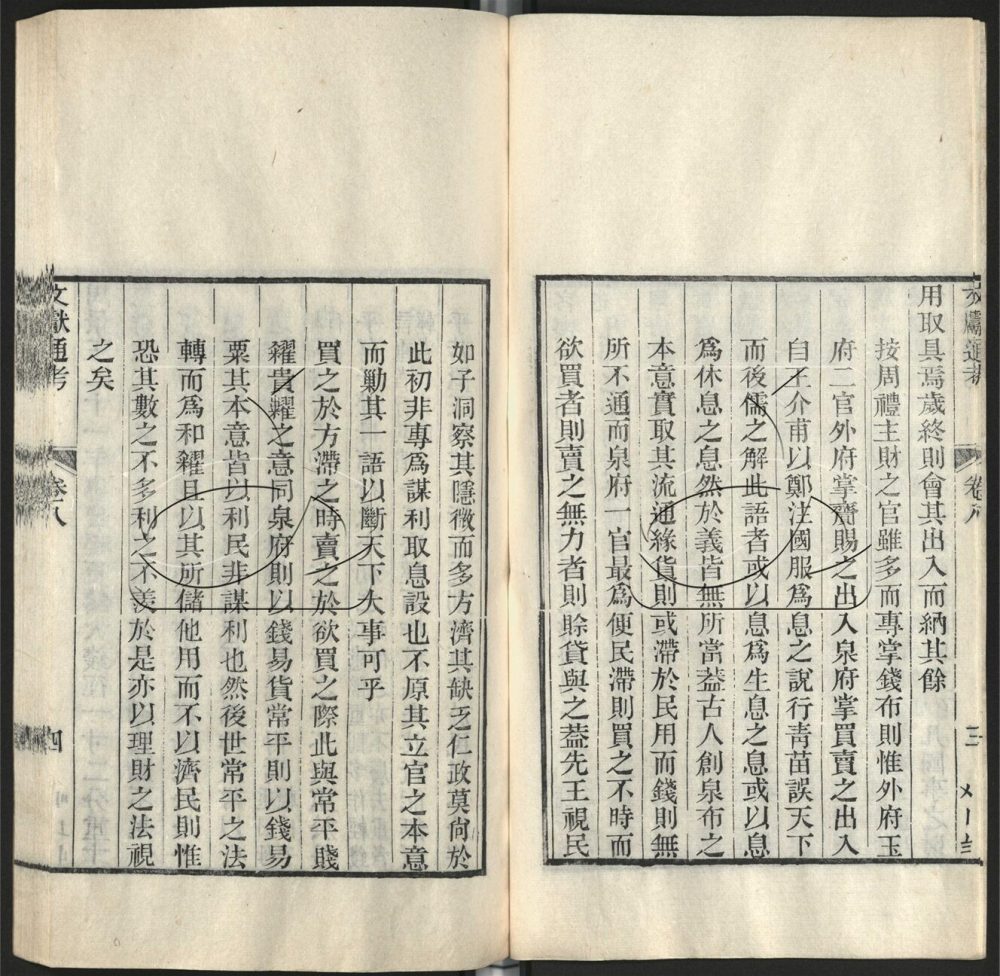 文獻通考 卷八 三
用取具焉歲終則會其出入而納其餘
按周禮主財之官雖多而專掌錢布則惟外府玉
府二官外府掌齎賜之出入泉府掌買賣之出入
自王介甫以鄭注國服爲息之說行青苗誤天下
而後儒之解此語者或以息爲生息之息或以息
爲休息之息然於義皆無所當葢古人創泉布之
本意實取其流通緣貨則或滯於民用而錢則無
所不通而泉府一官最爲便民滯則買之不時而
欲買者則賣之無力者則賖貸與之葢先王視民
如子洞察其隱微而多方濟其缺乏仁政莫尙於
此初非專爲謀利取息設也不原其立官之本意
而勦其一語以斷天下大事可乎
買之於方滯之時賣之於欲買之際此與常平賤
糴貴糶之意同泉府則以錢易貨常平則以錢易
粟其本意皆以利民非謀利也然後世常平之法
轉而爲和糴且以其所儲他用而不以濟民則惟
恐其數之不多利之不羨於是亦以理財之法視
之矣
文獻通考 卷八 四